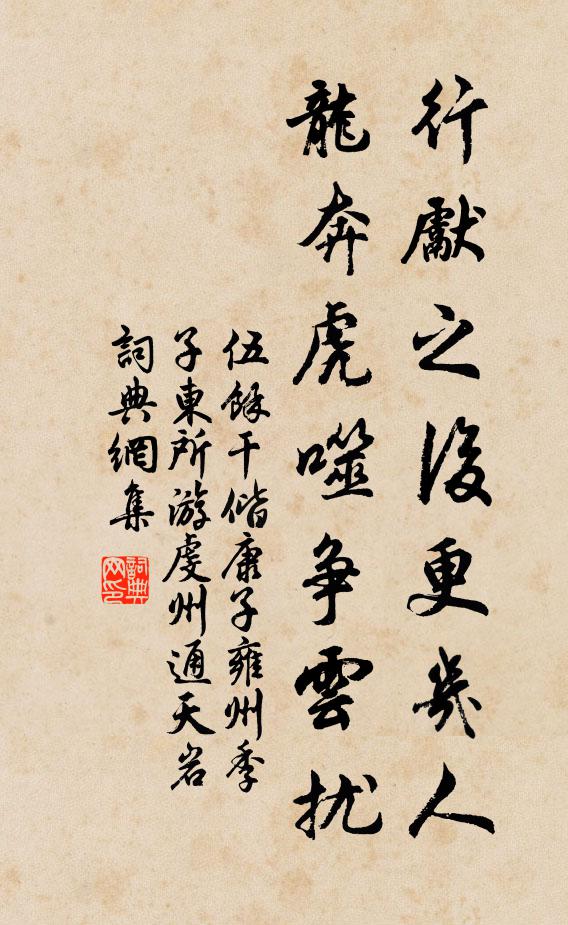 行獻之後更幾人
龍奔虎噬争雲扰
伍餘干偕康子雍州季
子東所游虔州通天岩
詞典網集
詞典网印